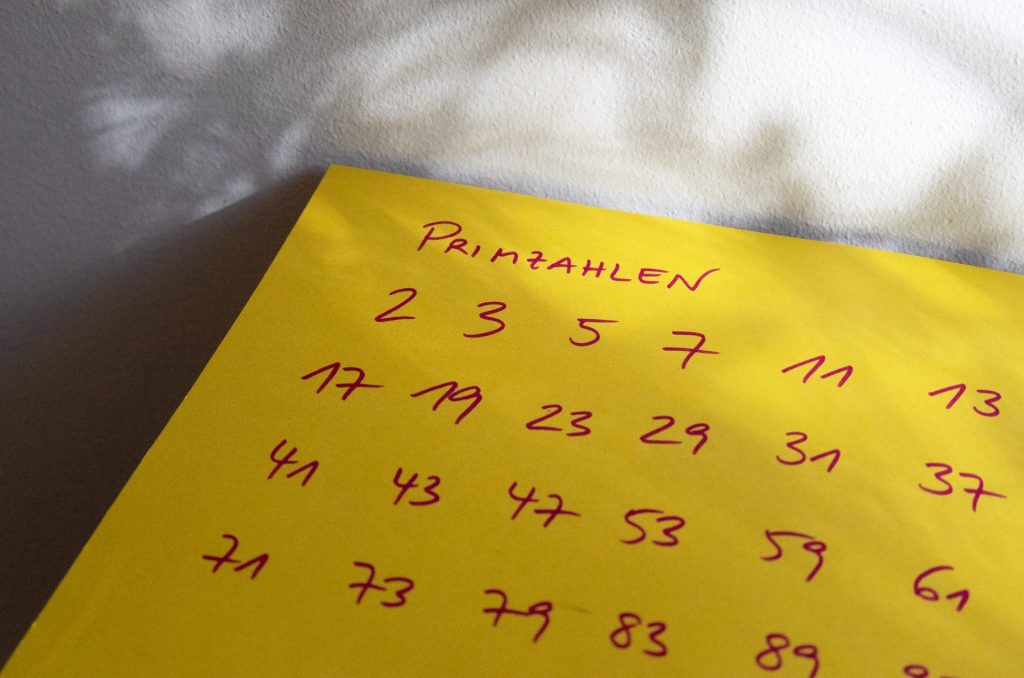 PRIMZAHLEN
2 3 5 7 11 13
17 19 23 29 31 37
41 43 47 53 59 61
71 73 79 83 89